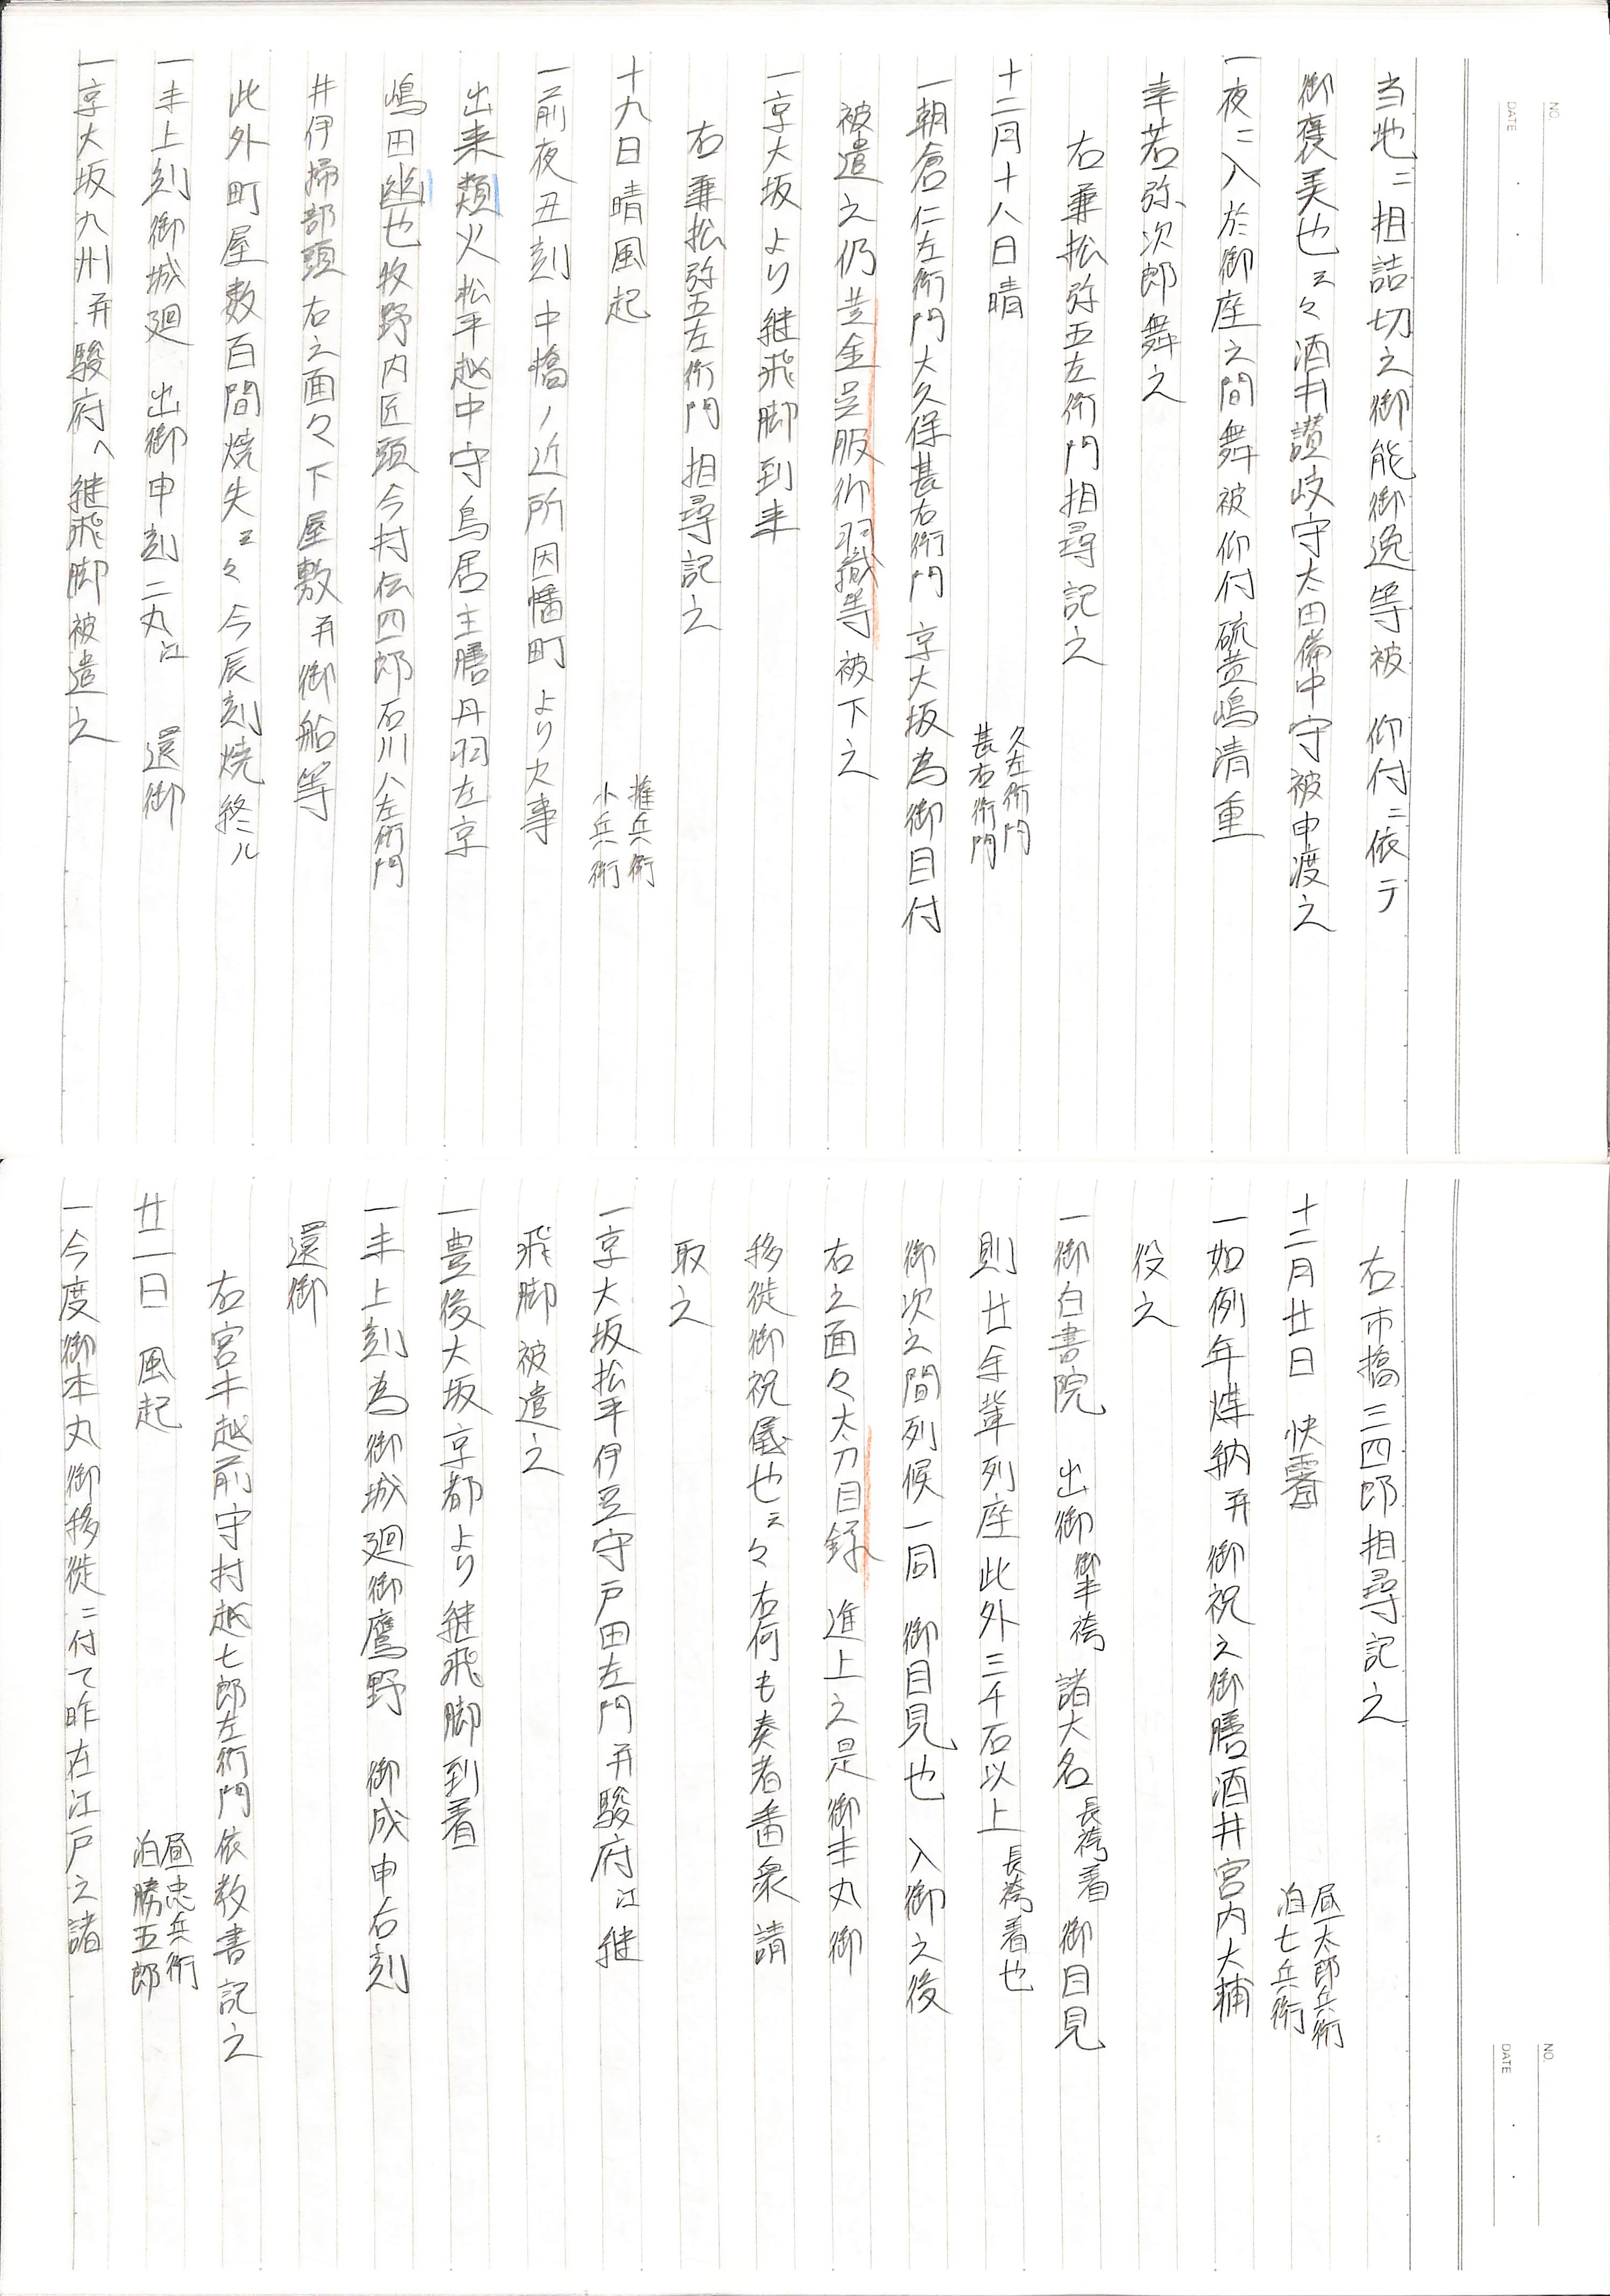 NO.
DATE
当地ニ相詰切之御能御逸等被 仰付ニ依テ
御褒美也云々酒井讃岐守太田備中守被申渡之
一夜ニ入於御座之間舞被仰付硫黄嶋清重
幸若弥次郎舞之
右兼松弥五左衛門相尋記之
十二月十八日晴 久左衛門 甚右衛門
一朝倉仁左衛門大久保甚右衛門京大坂為御目付
被遣之仍黄金呉服御羽織等被下之
一京大坂より継飛脚到来
右兼松弥五左衛門相尋記之
十九日晴風起 権兵衛 小兵衛
一前夜丑刻中橋ノ近所因幡町より火事
出来類火松平越中守鳥居主膳丹羽左京
嶋田幽也牧野内匠頭今村伝四郎石川八左衛門
井伊掃部頭右之面々下屋敷并御船等
此外町屋数百間焼失云々今辰刻焼終ル
一未上刻御城廻 出御申刻二丸江 還御
一京大坂九州并駿府へ継飛脚被遣之
NO.
DATE
右市橋三四郎相尋記之
十二月廿日 快霽 昼太郎兵衛 泊七兵衛
一如例年煤納并御祝之御膳酒井宮内大輔
役之
一御白書院 出御御半袴諸大名長袴着御目見
則廿余輩列座此外三千石以上長袴着也
御次之間列候一同 御目見也 入御之後
右之面々太刀目録 進上之是御本丸御
移徙御祝儀也云々右何も奏者番衆請
取之
一京大坂松平伊豆守戸田左門并駿府江継
飛脚被遣之
一豊後大坂京都より継飛脚到着
一未上刻為御城廻御鷹野 御成申右刻
還御
右宮本越前守村越七郎左衛門依教書記之
廿一日 風起 昼忠兵衛 泊勝五郎
一今度御本丸御移徙ニ付て昨在江戸之諸